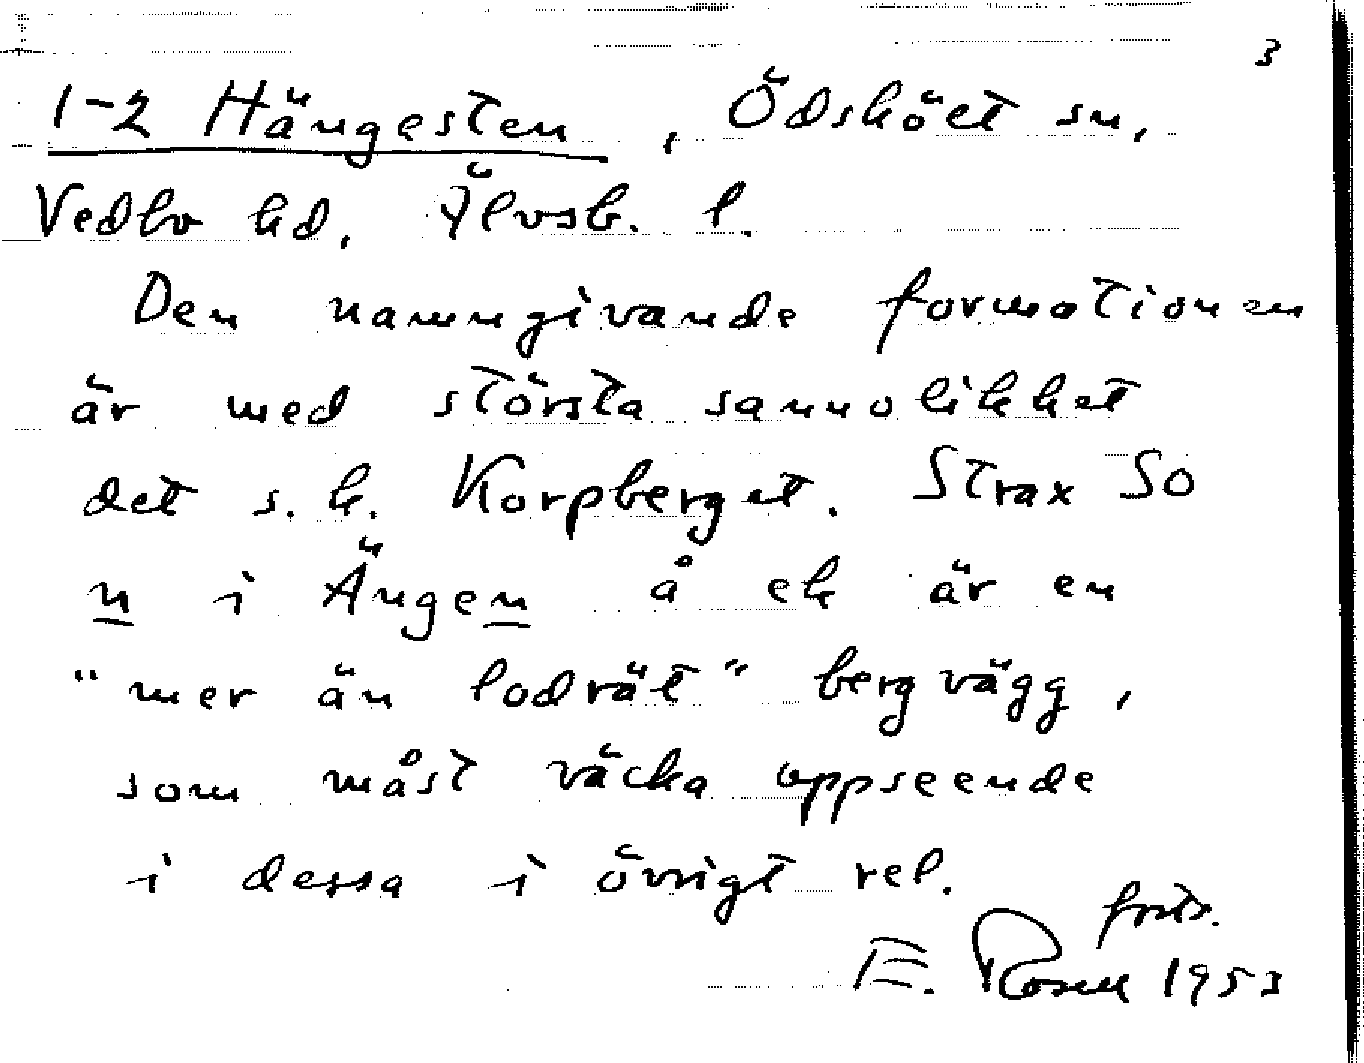 3
1-2 Hängesten, Ödsköet sn,
Vedbo hd, Älvsb. l.
Den namngivande formationen
är med största sannolikhet
det s. k. Korpberget. Strax SO
n i Ängen å ek är en
"mer än lodrät" bergvägg,
som måst väcka uppseende
i dessa i övrigt rel.
forts.
E. Rosell 1953